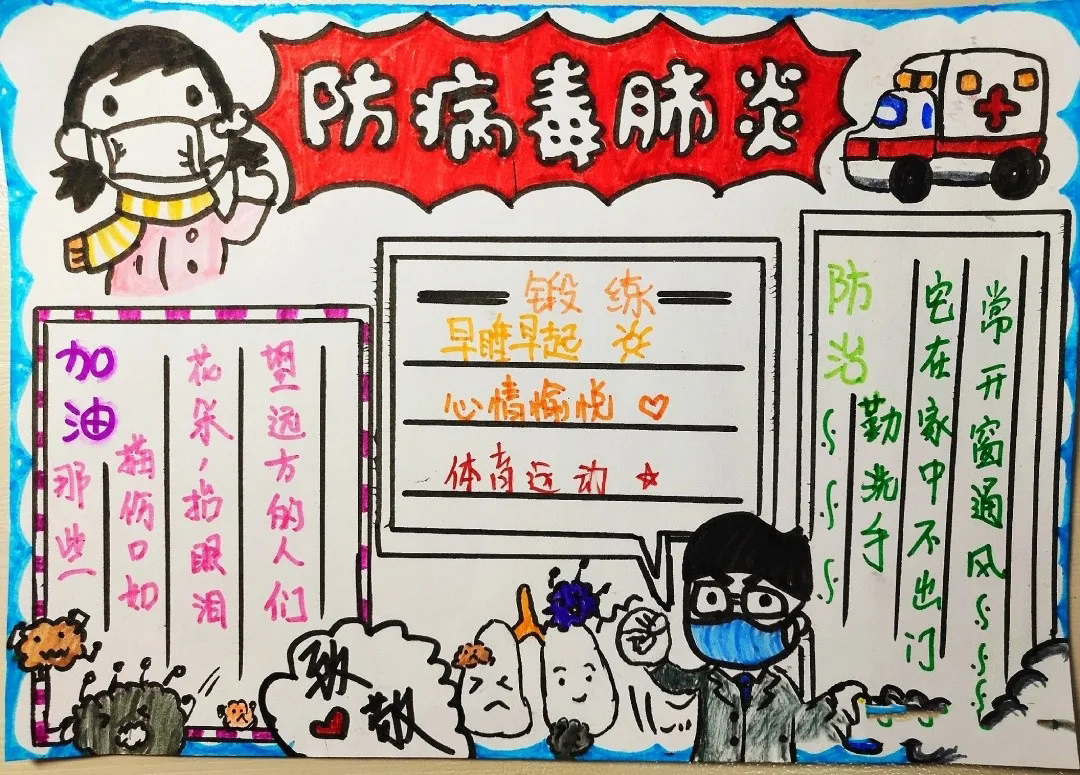 防病毒肺炎
加油
那些
伤口如
花朵，抬眼泪
望远方的人们
锻练
早睡早起
心情愉悦
体育运动
防治
勤洗手
宅在家中不出门
常开窗通风
致敬